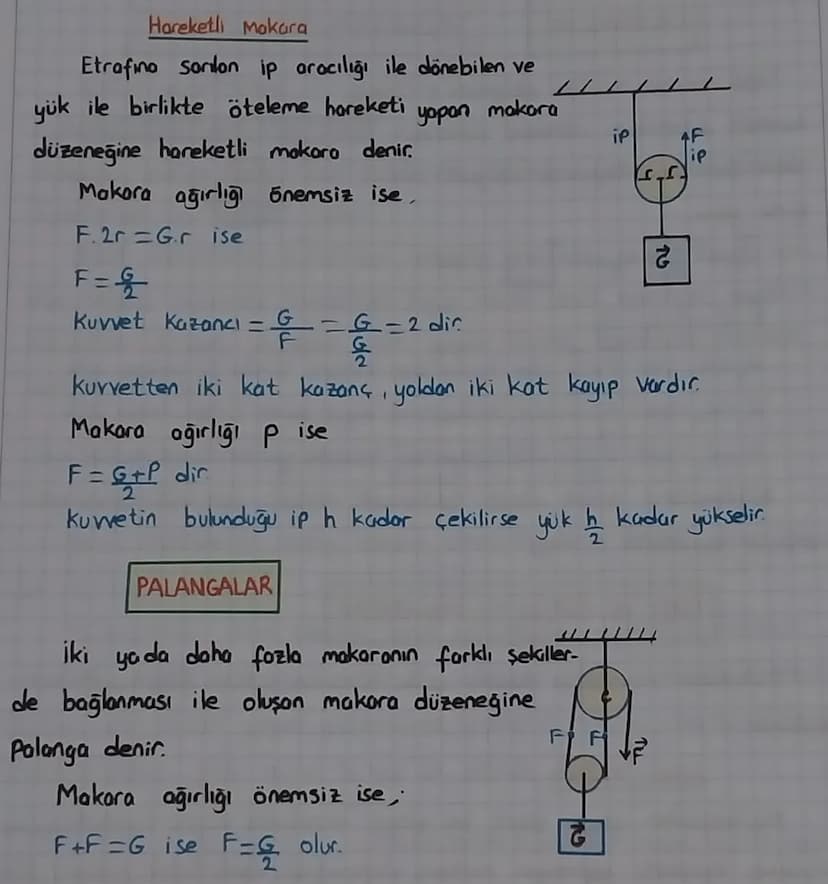 Hareketli Makara
Etrafına sarılan ip aracılığı ile dönebilen ve
yük ile birlikte öteleme hareketi yapan makara
düzeneğine hareketli makara denir.
ip
F
ip
r r
G
Makara ağırlığı önemsiz ise,
F.2r = G.r ise
F = G/2
Kuvvet Kazancı = G/F = G/(G/2) = 2 dir.
Kuvvetten iki kat kazanç, yoldan iki kat kayıp vardır.
Makara ağırlığı P ise
F = (G+P)/2 dir
Kuvvetin bulunduğu ip h kadar çekilirse yük h/2 kadar yükselir.
PALANGALAR
İki yada daha fazla makaranın farklı şekiller-
de bağlanması ile oluşan makara düzeneğine
Palanga denir.
F F F
G
Makara ağırlığı önemsiz ise,
F+F = G ise F = G/2 olur.